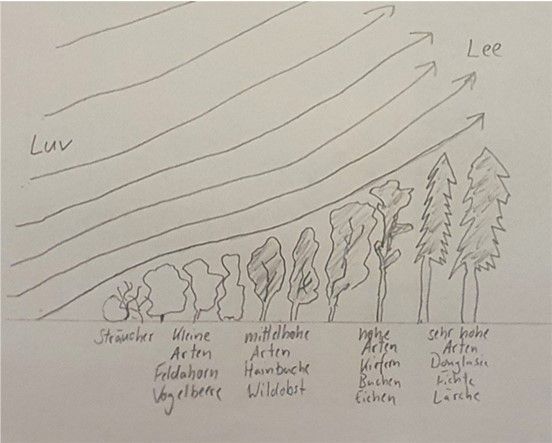 Lee
Luv
Sträucher
kleine
Arten
Feldahorn
Vogelbeere
mittelhohe
Arten
Hainbuche
Wildobst
hohe
Arten
Kiefern
Buchen
Eichen
sehr hohe
Arten
Douglasie
Fichte
Lärche